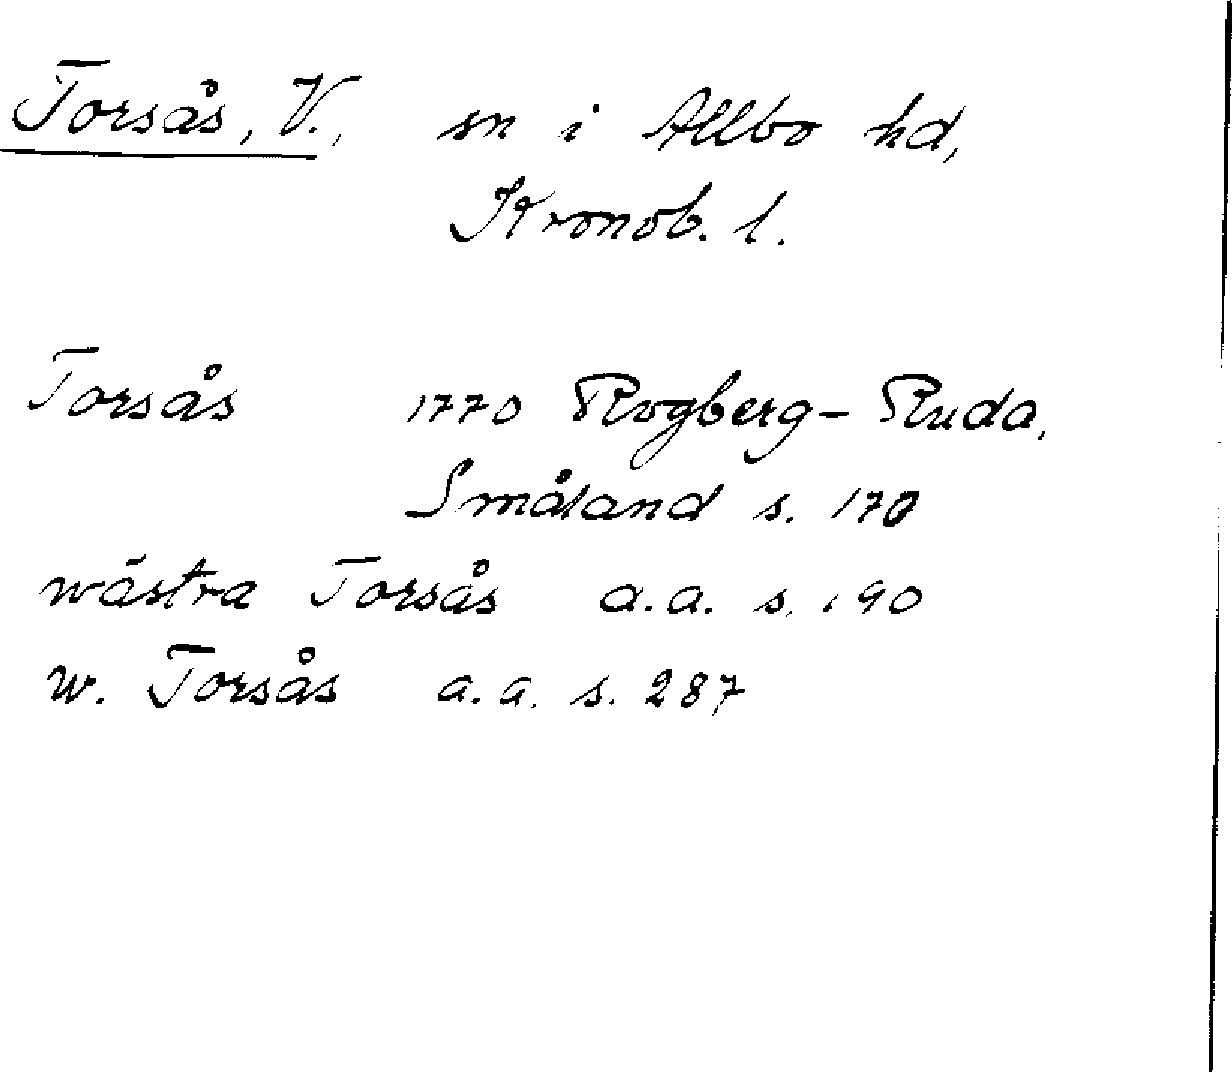 Torsås, V., sn i Allbo hd,
Kronob. l.
Torsås 1770 Rogberg-Ruda,
Småland s. 170
wästra Torsås a.a. s. 190
w. Torsås a.a. s. 287